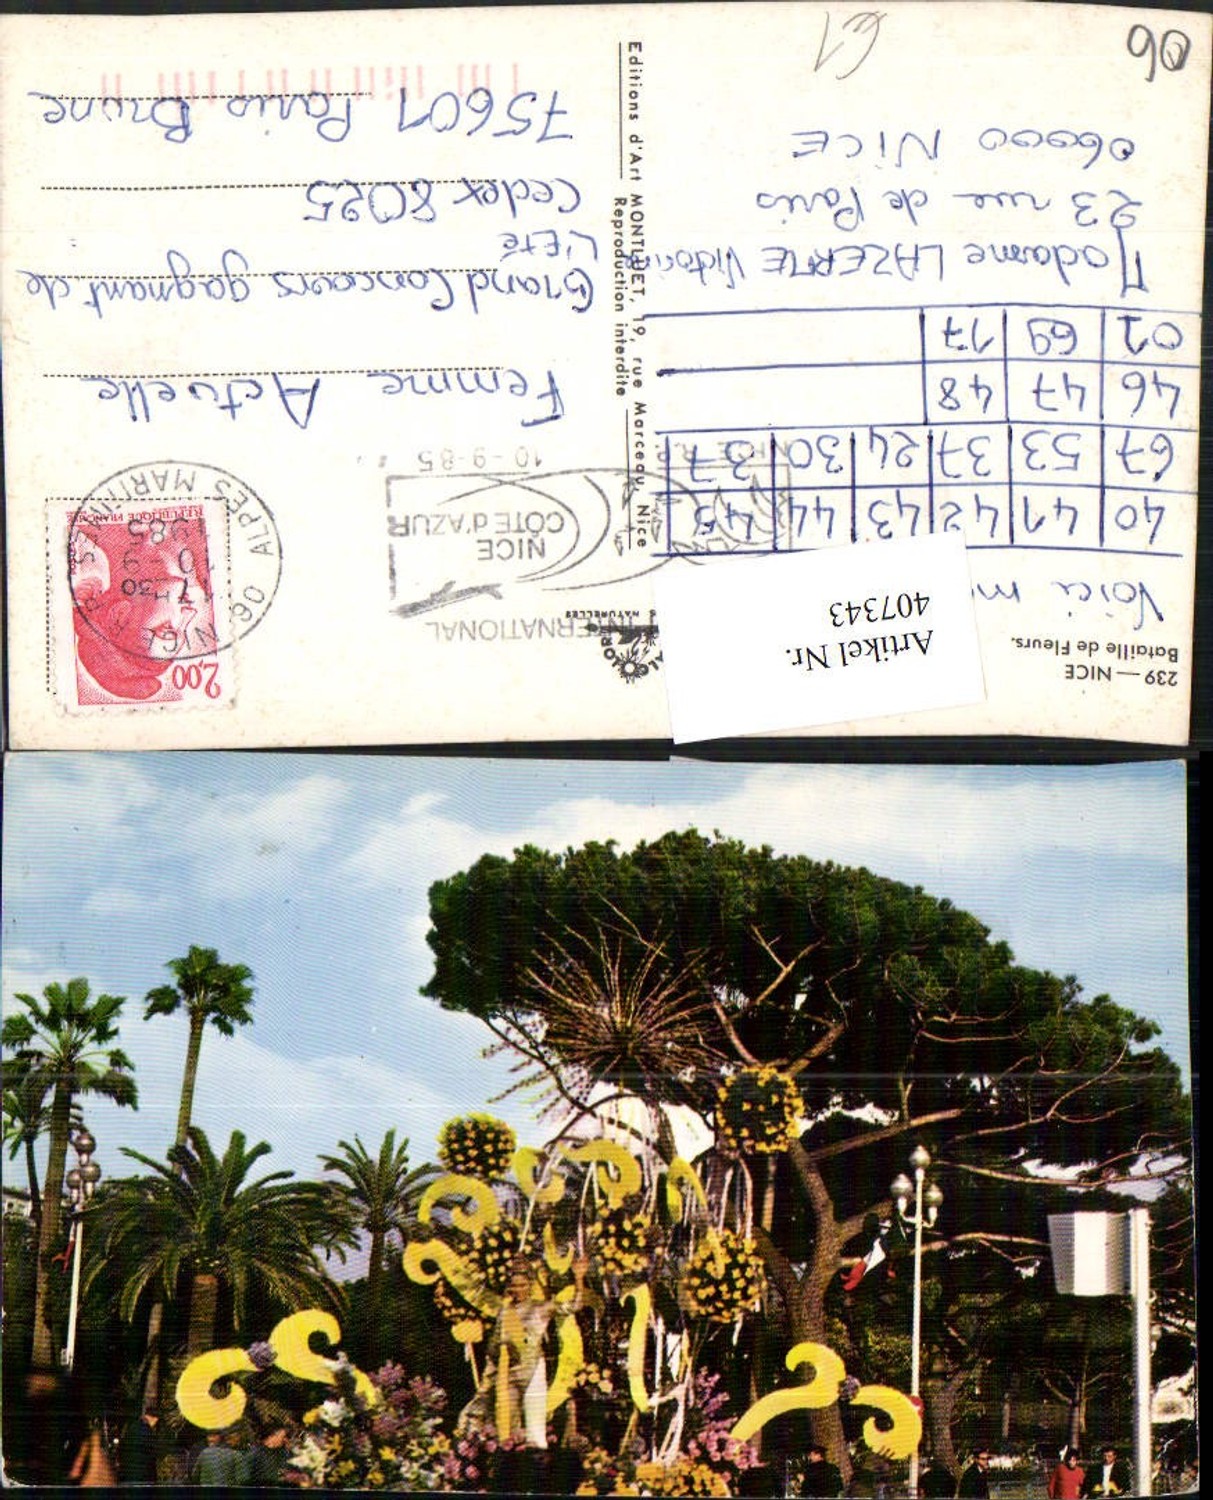 239 — NICE
Bataille de Fleurs.
Artikel Nr.
407343
Voici m
40 41 42 43 44 45
67 53 37 24 30 37
46 47 48
01 69 17
Madame LAZERME Victorine
23 rue de Paris
06000 NICE
06
Editions d'Art MONTLUET, 19, rue Marceau, Nice
Reproduction interdite
INTERNATIONAL
NICE
CÔTE d'AZUR
10-9-85
2,00
REPUBLIQUE FRANÇAISE
NICE R.P.
17H30
10-9
1985
06 ALPES MARITIMES
Femme Actuelle
Grand Concours gagnant de
L'Eté
Cedex 8025
75601 Paris Brune